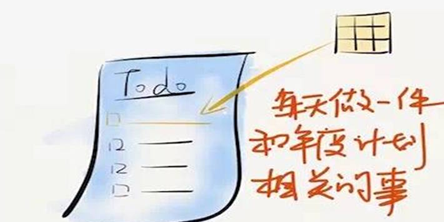 Todo
每天做一件
和年度计划
相关的事